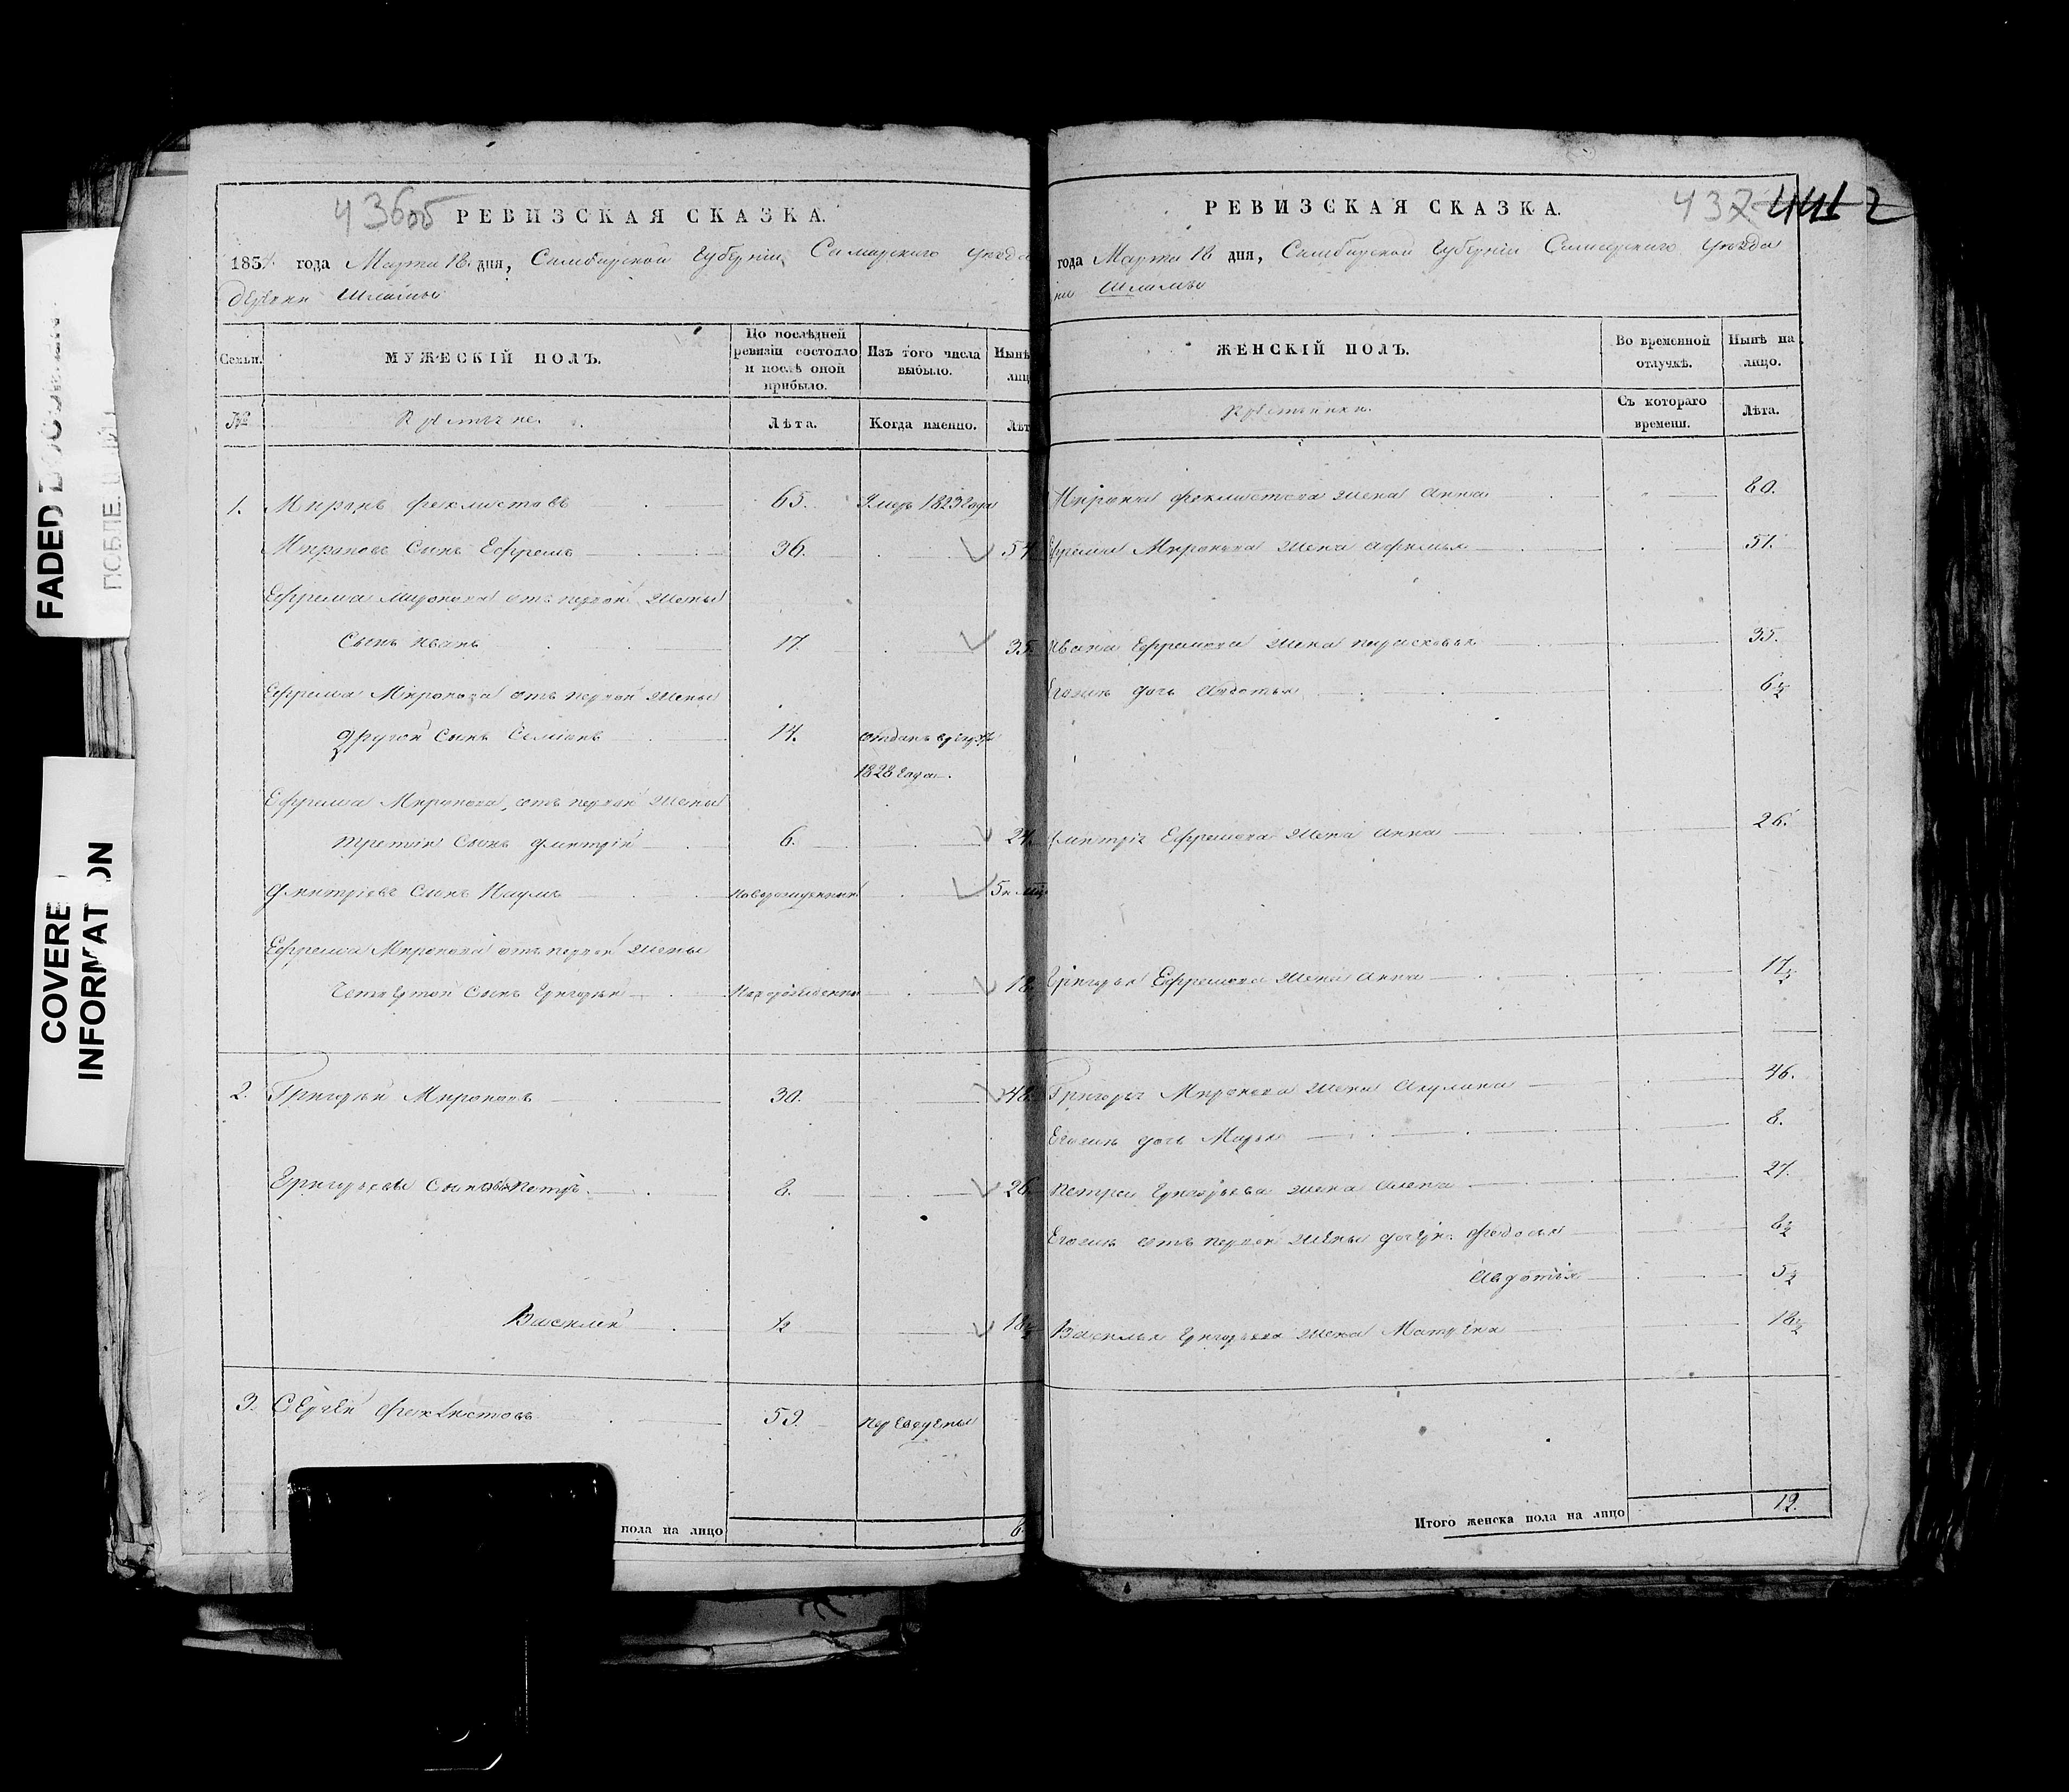 FADED DOCUMENT
COVERED
INFORMATION
436об
РЕВИЗСКАЯ СКАЗКА.
1834 года Марта 18 дня, Симбирской Губерніи, Самарскаго уѣзда
деревни Шламы
Семьи.
МУЖЕСКІЙ ПОЛЪ.
По послѣдней ревизіи состояло и послѣ оной прибыло.
Изъ того числа выбыло.
Нынѣ лиц
№
Крестьяне.
Лѣта.
Когда именно.
Лѣт
1. Миронъ Феклистовъ 65. Умеръ 1823 года
Мироновъ Сынъ Ефремъ 36. 54
Ефрема Миронова отъ первой жены
Сынъ Иванъ 17. 35.
Ефрема Миронова отъ первой жены
другой Сынъ Семіонъ 14. отданъ въ
1828 года.
Ефрема Миронова, отъ первой жены
третій Сынъ Дмитрій 6. 24.
Дмитріевъ Сынъ Наумъ новорожденный 5
Ефрема Миронова отъ первой жены
Четвертой Сынъ Григорій новорожденный 18.
2. Григорій Мироновъ 30. 48.
Григорьевы Сыновья Петръ. 8. 26.
Василей ½ 18½
3. Сергей Феклистовъ 59. переведены
пола на лицо 8.
437
442
РЕВИЗСКАЯ СКАЗКА.
года Марта 18 дня, Симбирской Губерніи Самарскаго уѣзда
ни Шламы
ЖЕНСКІЙ ПОЛЪ.
Во временной отлучкѣ.
Нынѣ на лицо.
Крестьянки.
Съ котораго времени.
Лѣта.
Мирона Феклистова жена Анна 80.
Ефрема Миронова жена Афимья 51.
Ивана Ефремова жена Парасковья 35.
Егожъ дочь Авдотья 6½
Дмитрія Ефремова жена Анна 26.
Григорья Ефремова жена Анна 17½
Григорья Миронова жена Акулина 46.
Егожъ дочь Марья 8.
Петра Григорьева жена Алена 27.
Егожъ отъ первой жены дочери: Федосья 8½
Авдотья 5½
Василья Григорьева жена Матрена 18½
Итого женска пола на лицо 12.